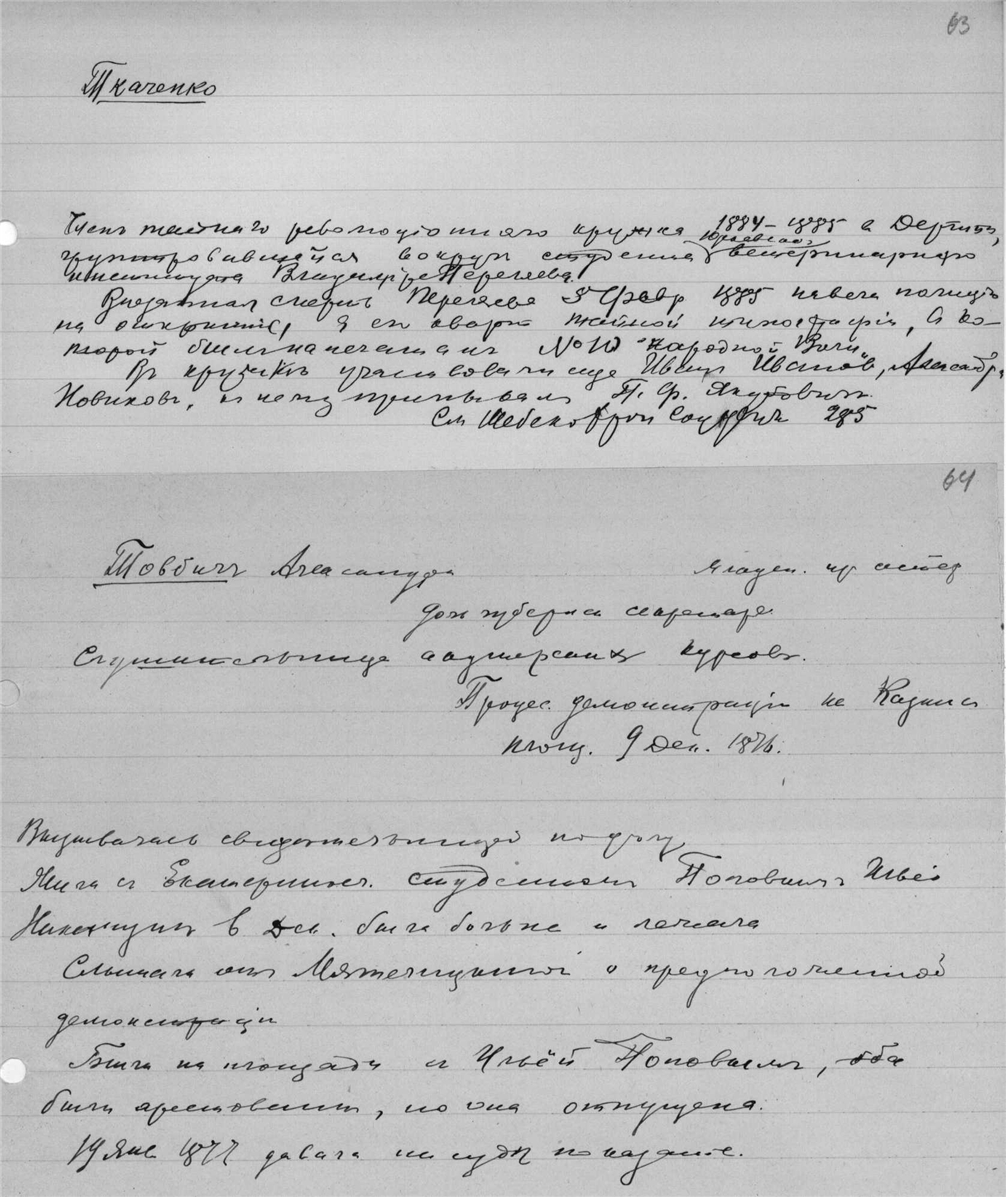 63
Ткаченко
Членъ тайнаго революціоннаго кружка 1884–1885 в Дерпте,
группировавшійся вокругъ студента Юрьевскаго ветеринарнаго
института Владиміра Переляева.
Внезапная смерть Переляева 5 Февр 1885 навела полицію
на открытіе, в его кварт тайной типографіи, в ко-
торой былъ напечатанъ № 10 "Народной Воли"
Въ кружкѣ участвовали еще Иванъ Ивановъ, Александръ
Новиковъ, къ нему примыкалъ П. Ф. Якубовичъ.
См Шебеко Хрон Соц 285
64
Товбичъ Александра
дочь губернск секретаря
Слушательница акушерскихъ курсовъ.
Процес. демонстраціи на Казанск
площ. 9 Дек. 1876.
Вызывалась свидетельницей по делу
Жила съ Екатериносл. студентомъ Поповымъ Ильей
в Дек. была больна и лечила
Слышала отъ о предположенной
демонстраціи
Была на площади съ Ильёй Поповымъ, оба
были арестованы, но она отпущена.
19 Янв 1877 давала на судѣ показаніе.